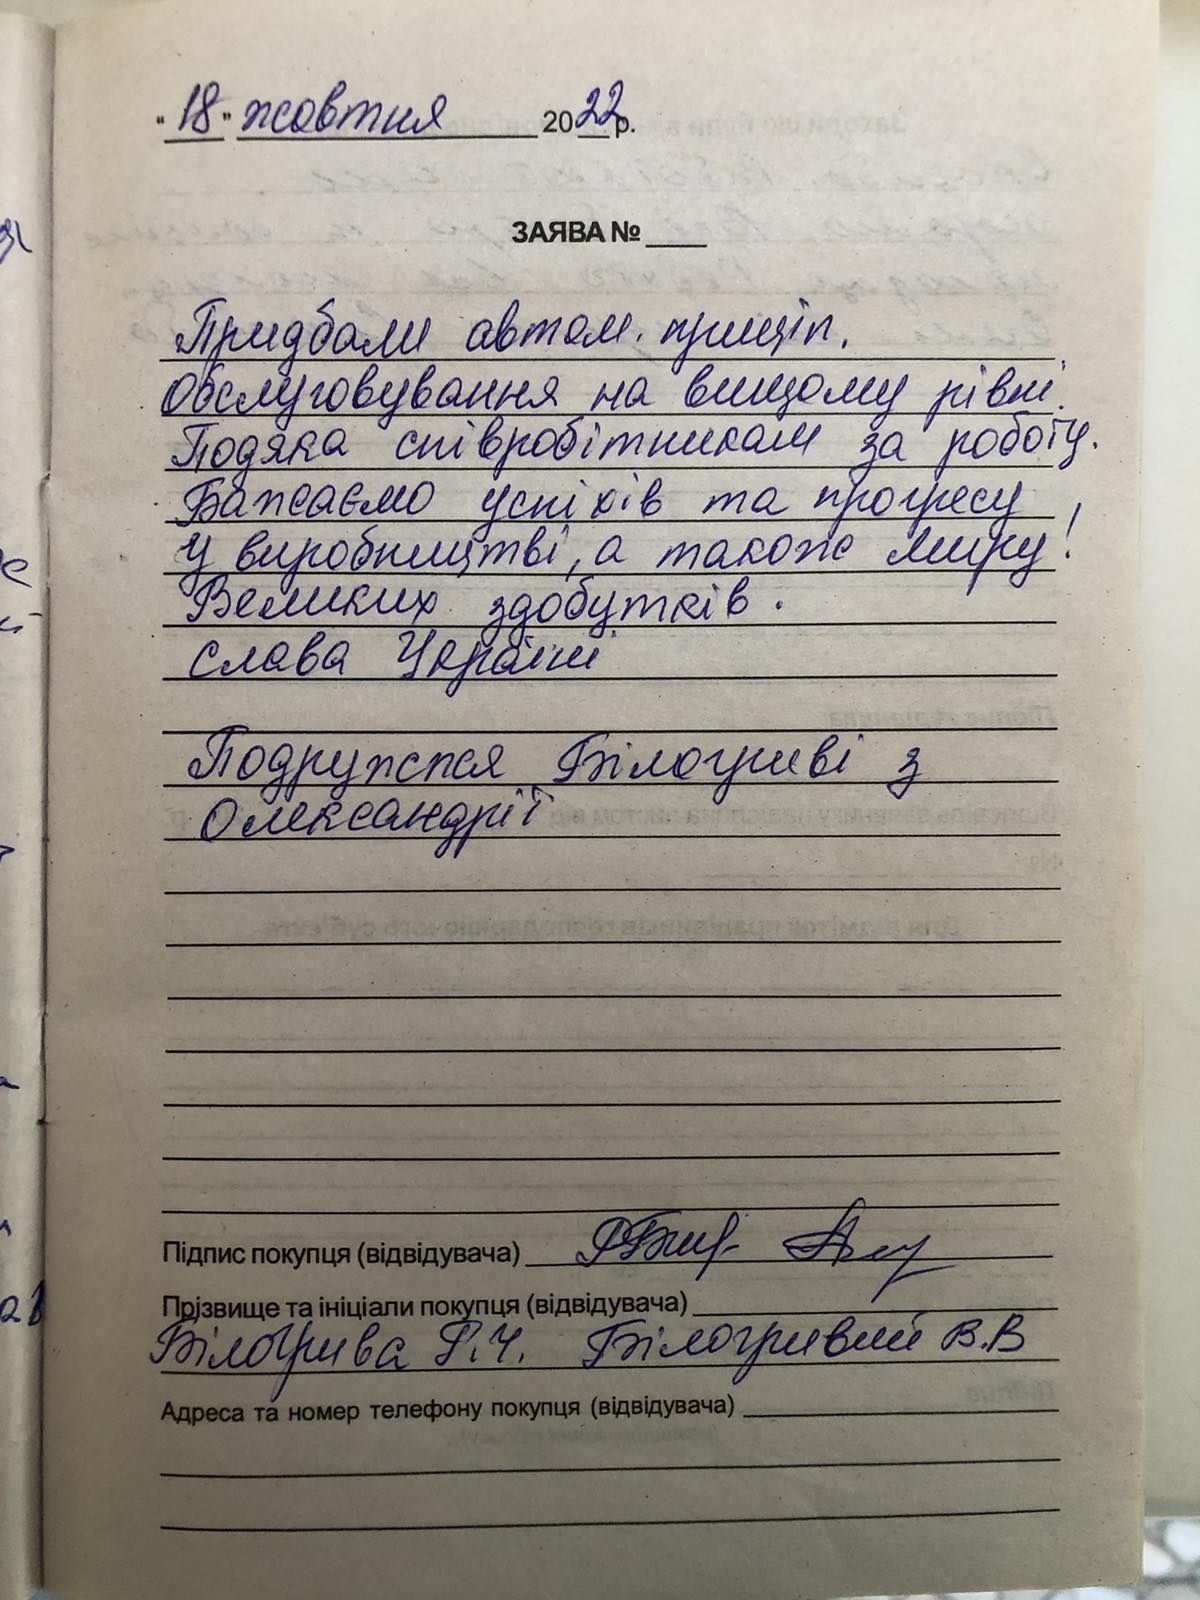 "18" жовтня 2022р.
ЗАЯВА №
Придбали автом. прицеп.
Обслуговування на вищому рівні.
Подяка співробітникам за роботу.
Бажаємо успіхів та прогресу
у виробництві, а також миру!
Великих здобутків.
Слава Україні
Подружжя Білогриві з
Олександрії
Підпис покупця (відвідувача)
Прізвище та ініціали покупця (відвідувача)
Білогрива Р.Ч. Білогривий В.В
Адреса та номер телефону покупця (відвідувача)